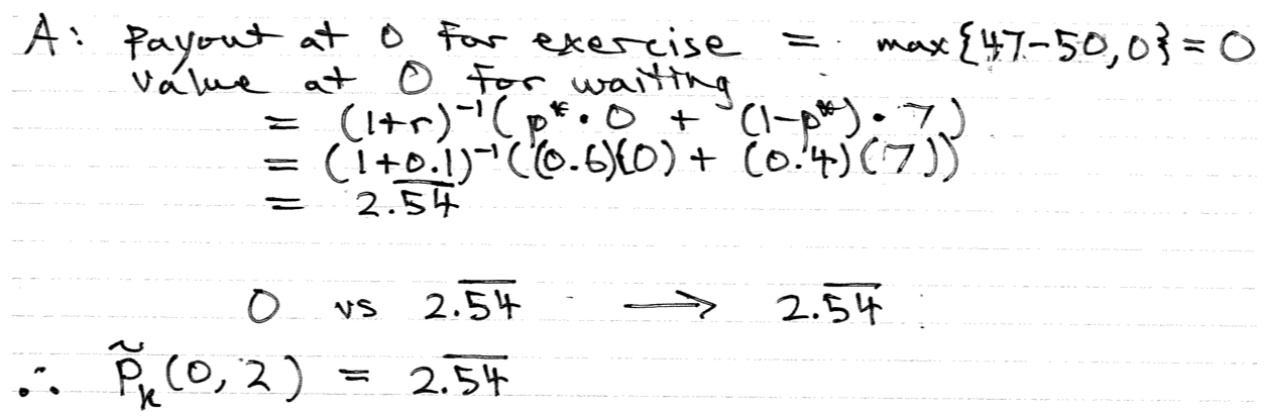 A: Payout at 0 for exercise = max{47-50,0} = 0
Value at 0 for waiting
= (1+r)⁻¹(p*·0 + (1-p*)·7)
= (1+0.1)⁻¹((0.6)(0) + (0.4)(7))
= 2.5̅4̅
0 vs 2.5̅4̅ ⟶ 2.5̅4̅
∴ P̃ₖ(0,2) = 2.5̅4̅